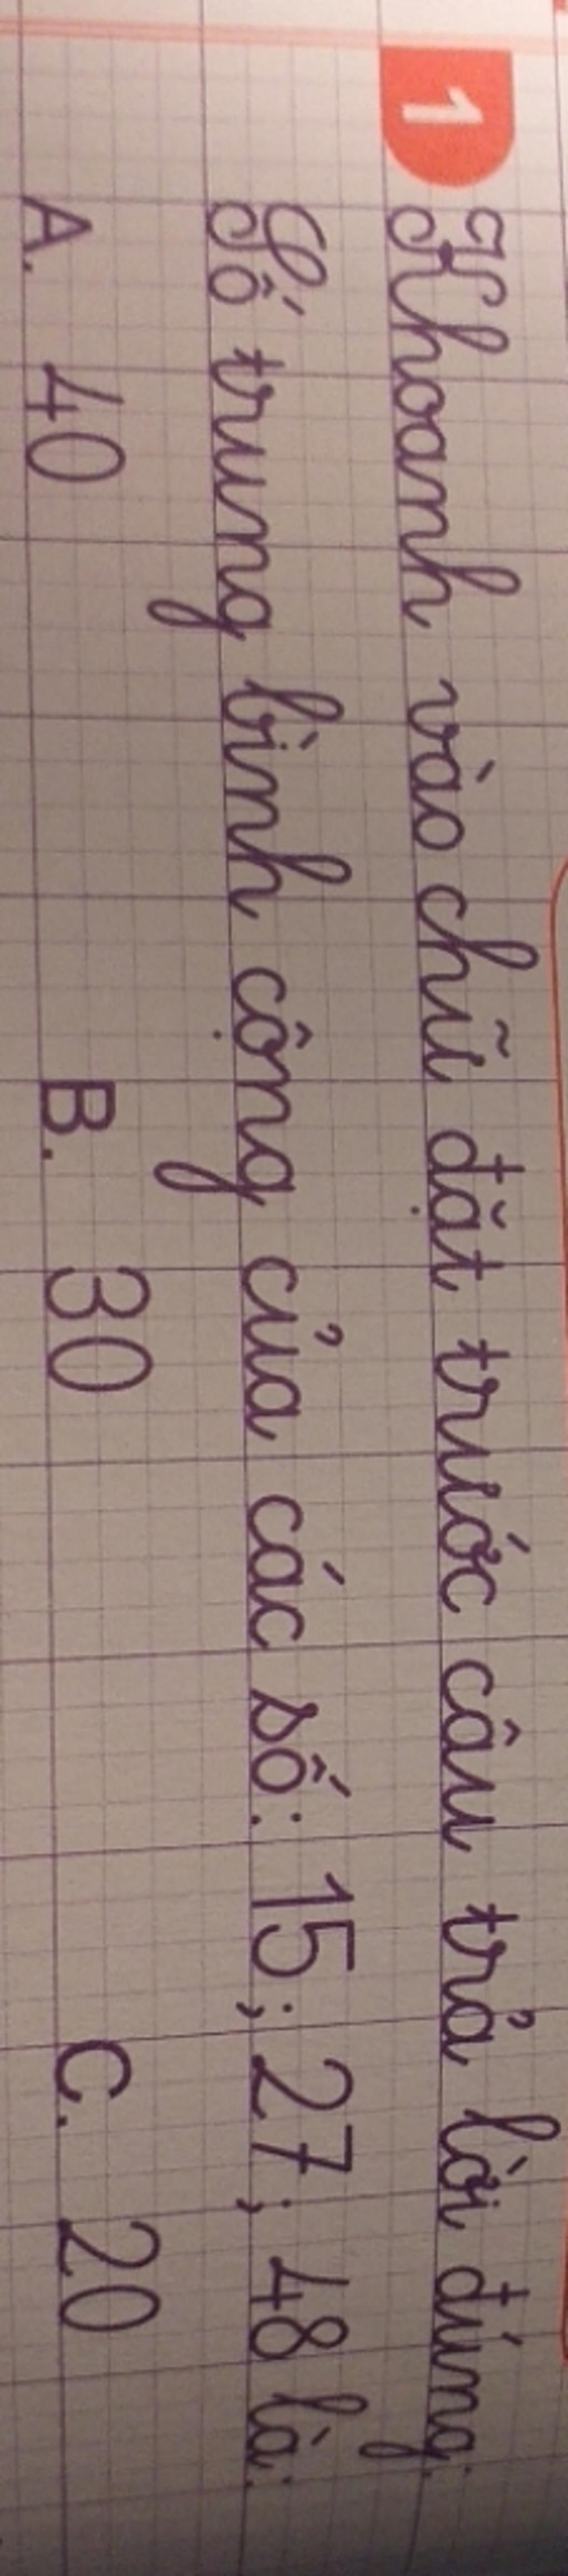 1 Khoanh vào chữ đặt trước câu trả lời đúng.
Số trung bình cộng của các số: 15; 27; 48 là:
A. 40 B. 30 C. 20